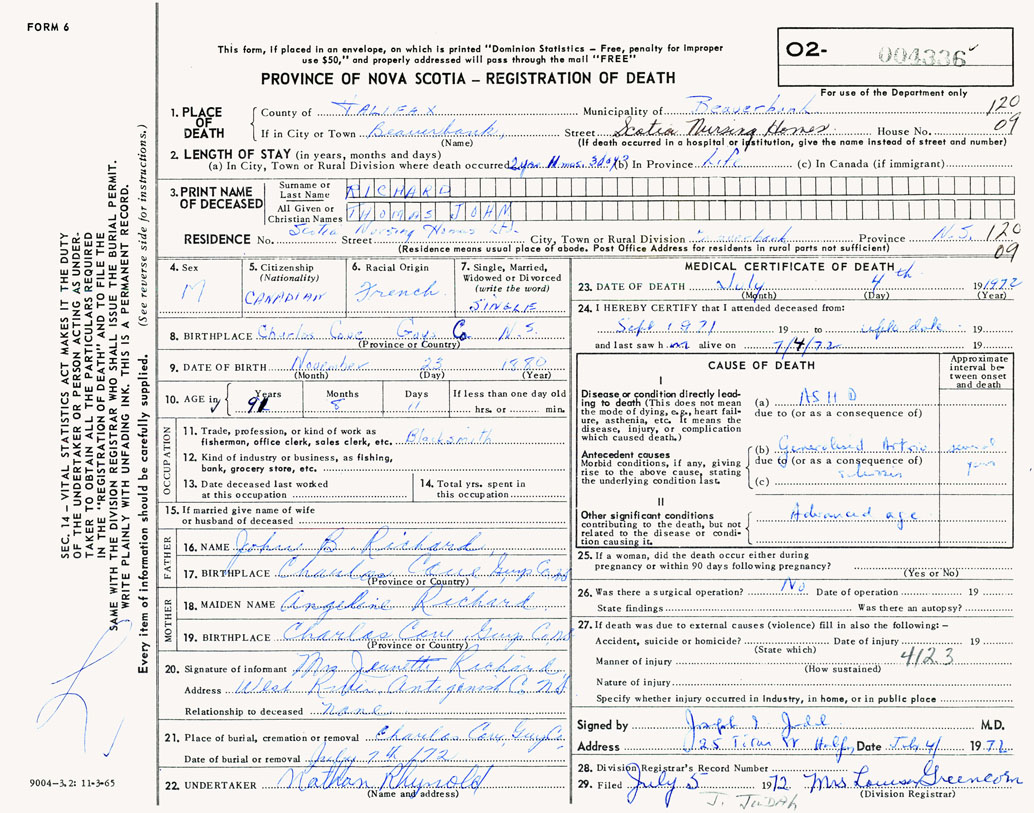 FORM 6
This form, if placed in an envelope, on which is printed "Dominion Statistics – Free, penalty for improper
use $50," and properly addressed will pass through the mail "FREE"
PROVINCE OF NOVA SCOTIA – REGISTRATION OF DEATH
O2- 004336
For use of the Department only
120
09
1. PLACE OF DEATH
County of HALIFAX Municipality of Beaverbank
If in City or Town Beaverbank, Street Scotia Nursing Homes House No.
(Name) (If death occurred in a hospital or institution, give the name instead of street and number)
2. LENGTH OF STAY (in years, months and days)
(a) In City, Town or Rural Division where death occurred (b) In Province Life (c) In Canada (if immigrant)
3. PRINT NAME OF DECEASED
Surname or Last Name RICHARD
All Given or Christian Names THOMAS JOHN
Scotia Nursing Homes Ltd.
RESIDENCE No. Street City, Town or Rural Division Beaverbank Province N.S. 120
(Residence means usual place of abode. Post Office Address for residents in rural parts not sufficient) 09
4. Sex M
5. Citizenship (Nationality) CANADIAN
6. Racial Origin French
7. Single, Married, Widowed or Divorced (write the word) SINGLE
8. BIRTHPLACE Charlos Cove Guys Co. N.S.
(Province or Country)
9. DATE OF BIRTH November 23 1880
(Month) (Day) (Year)
10. AGE in Years 91 Months 8 Days 11 If less than one day old hrs. or min.
OCCUPATION
11. Trade, profession, or kind of work as
fisherman, office clerk, sales clerk, etc. Blacksmith
12. Kind of industry or business, as fishing,
bank, grocery store, etc.
13. Date deceased last worked
at this occupation
14. Total yrs. spent in
this occupation
15. If married give name of wife
or husband of deceased
FATHER
16. NAME John B. Richard,
17. BIRTHPLACE Charlos Cove Guys Co. NS
(Province or Country)
MOTHER
18. MAIDEN NAME Angeline Richard
19. BIRTHPLACE Charlos Cove Guys Co. NS
(Province or Country)
20. Signature of informant Mrs Jeanette Richard
Address West River Antigonish Co NS
Relationship to deceased none
21. Place of burial, cremation or removal Charlos Cove, Guy Co.
Date of burial or removal July 7th /72
22. UNDERTAKER Nathan Rhynold
(Name and address)
MEDICAL CERTIFICATE OF DEATH
23. DATE OF DEATH July 4th 1972
(Month) (Day) (Year)
24. I HEREBY CERTIFY that I attended deceased from:
Sept 1971 19 to date 19
and last saw him alive on 7/4/72 19
CAUSE OF DEATH
Approximate interval between onset and death
I
Disease or condition directly leading to death (This does not mean the mode of dying, e.g., heart failure, asthenia, etc. It means the disease, injury, or complication which caused death.)
(a) ASHD
due to (or as a consequence of)
Antecedent causes
Morbid conditions, if any, giving rise to the above cause, stating the underlying condition last.
(b) Generalized Arterio several
due to (or as a consequence of) years
(c) sclerosis
II
Other significant conditions
contributing to the death, but not related to the disease or condition causing it.
Advanced age
25. If a woman, did the death occur either during
pregnancy or within 90 days following pregnancy?
(Yes or No)
26. Was there a surgical operation? No Date of operation 19
State findings Was there an autopsy?
27. If death was due to external causes (violence) fill in also the following: –
Accident, suicide or homicide? Date of injury 19
(State which)
Manner of injury 4123
(How sustained)
Nature of injury
Specify whether injury occurred in Industry, in home, or in public place
Signed by M.D.
Address Date 1972
28. Division Registrar's Record Number
29. Filed July 5 1972 Mrs Louise Greencorn
(Division Registrar)
J. JUDAH
SEC. 14 – VITAL STATISTICS ACT MAKES IT THE DUTY
OF THE UNDERTAKER OR PERSON ACTING AS UNDER-
TAKER TO OBTAIN ALL THE PARTICULARS REQUIRED
IN THE "REGISTRATION OF DEATH" AND TO FILE THE
SAME WITH THE DIVISION REGISTRAR WHO SHALL ISSUE THE BURIAL PERMIT.
WRITE PLAINLY WITH UNFADING INK. THIS IS A PERMANENT RECORD.
Every item of information should be carefully supplied. (See reverse side for instructions.)
9004–3.2: 11-3-65